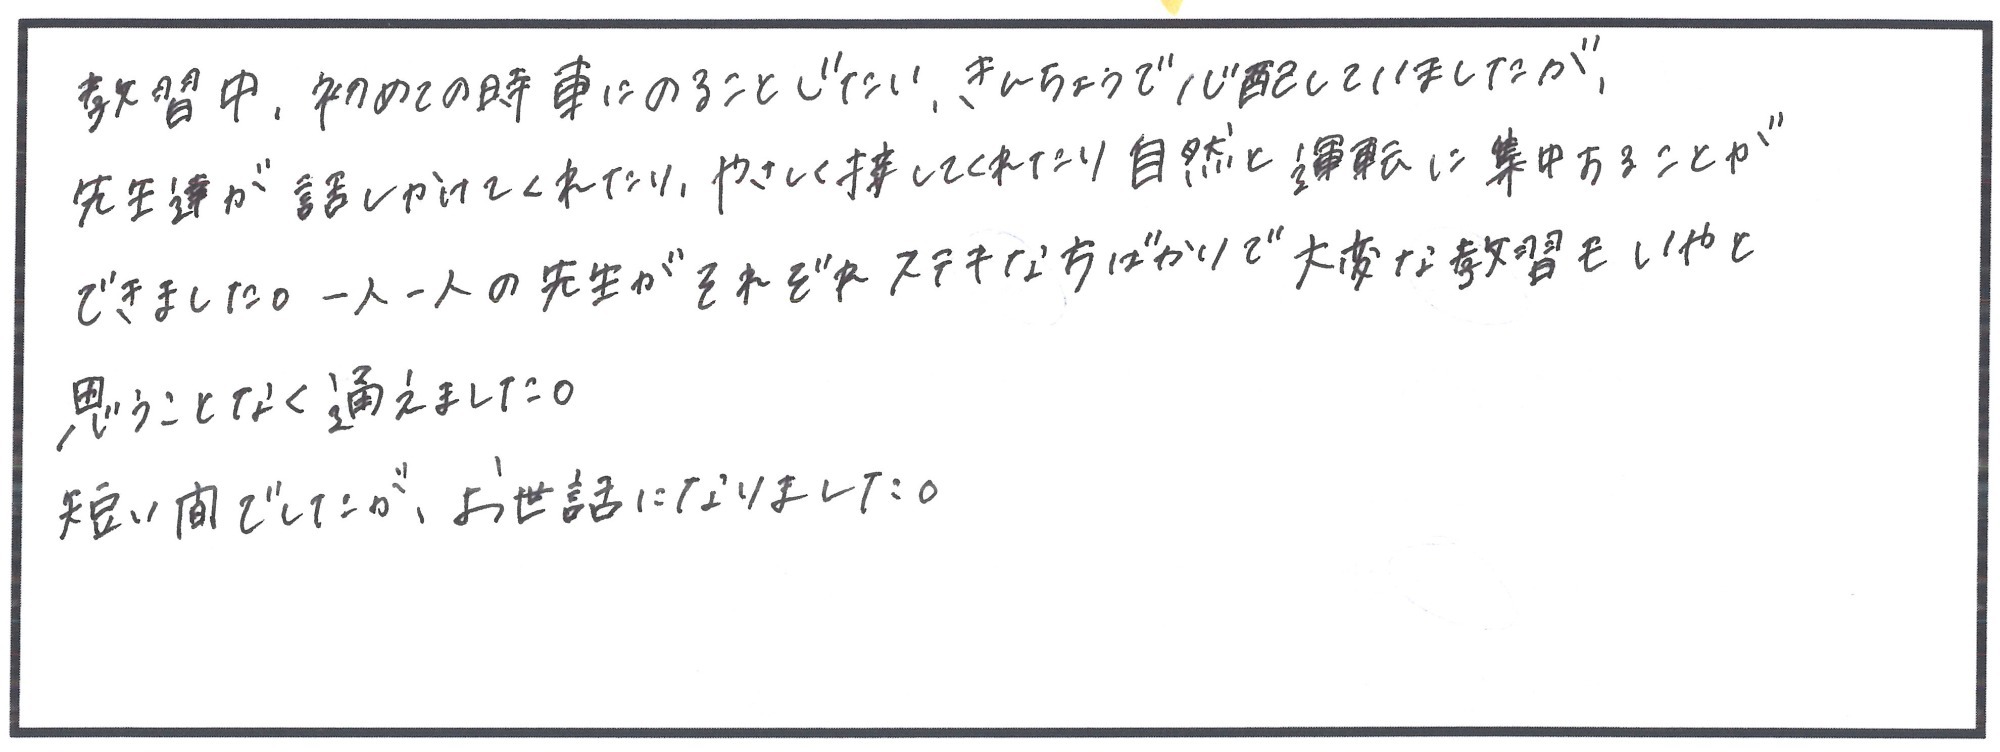 教習中、初めての時車にのることじたい、きんちょうで心配していましたが、
先生達が話しかけてくれたり、やさしく接してくれたり自然と運転に集中することが
できました。一人一人の先生がそれぞれステキな方ばかりで大変な教習もいやと
思うことなく通えました。
短い間でしたが、お世話になりました。